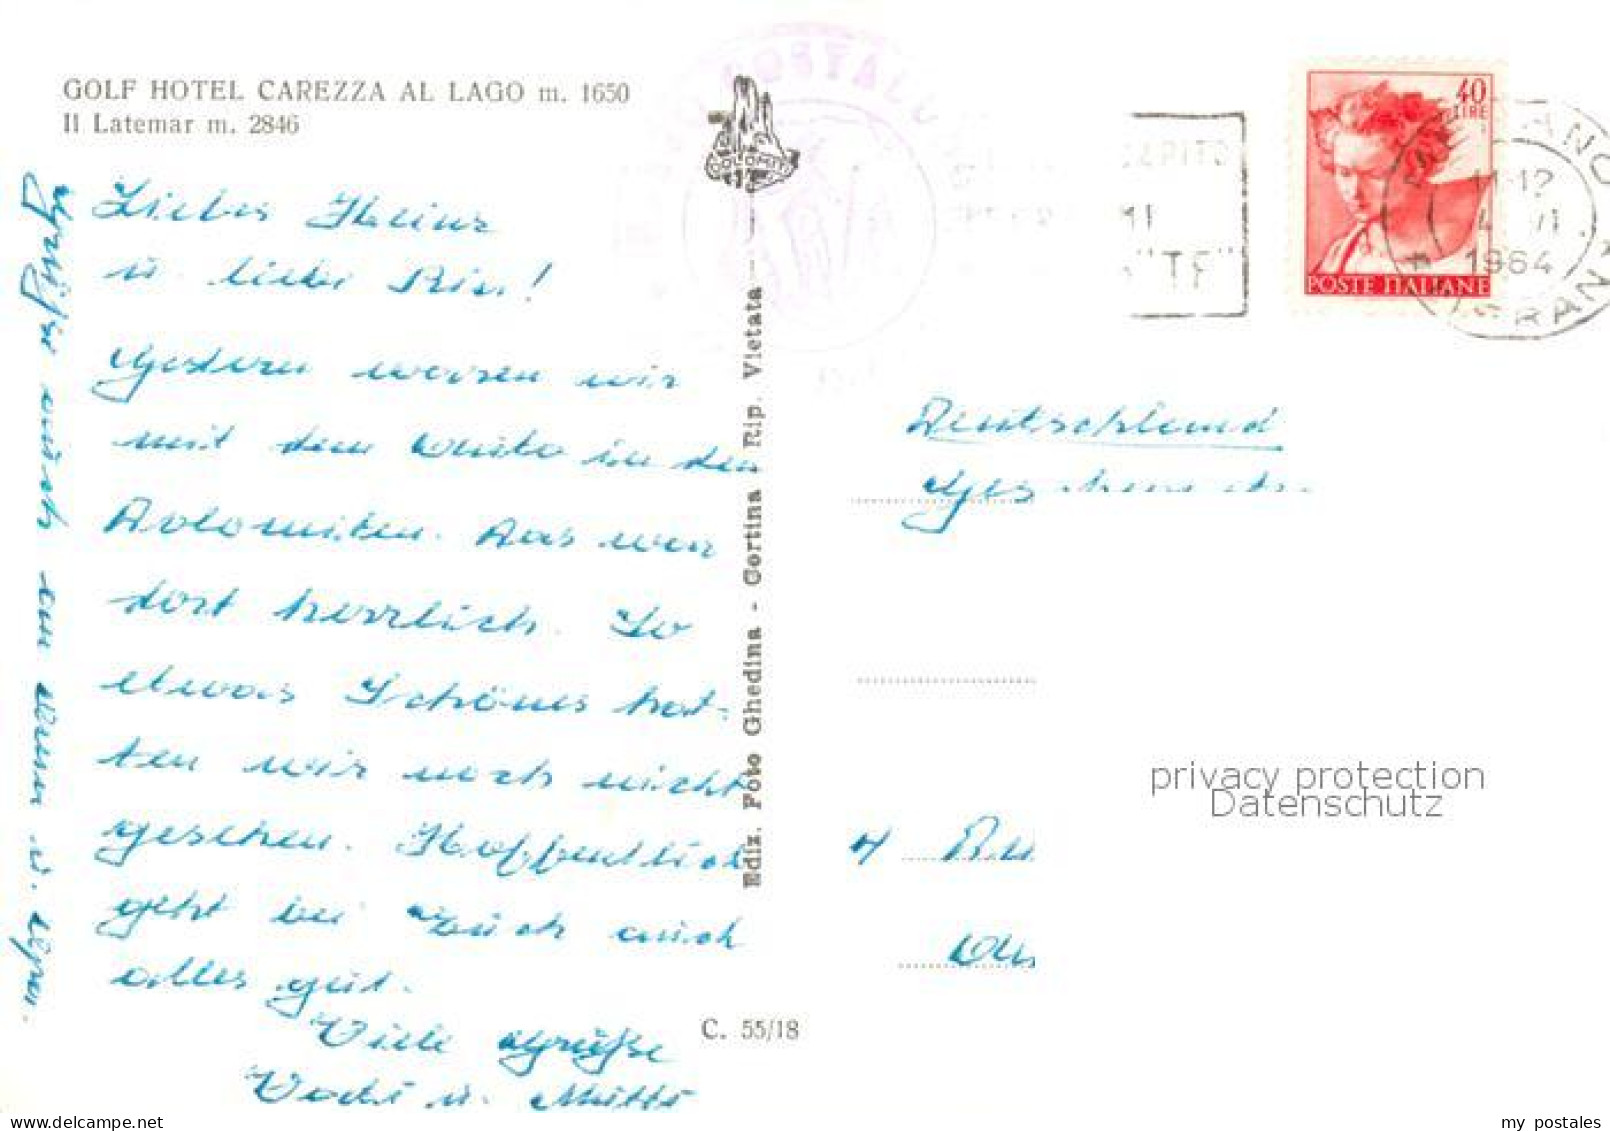 GOLF HOTEL CAREZZA AL LAGO m. 1650
Il Latemar m. 2846
DOLOMITI
Liebes Heinz
u. liebe Ria!
Gestern waren wir
mit dem Auto in den
Dolomiten. Das war
dort herrlich. So
etwas Schönes hat-
ten wir noch nicht
gesehen. Hoffentlich
geht bei Euch auch
alles gut.
Viele Grüße
Vati u. Mutti
Grüße auch an u.
Ediz. Foto Ghedina - Cortina - Rip. Vietata
C. 55/18
40
LIRE
POSTE ITALIANE
MERANO
11-12
4 VI
1964
MERAN
Deutschland
privacy protection
Datenschutz
my postales